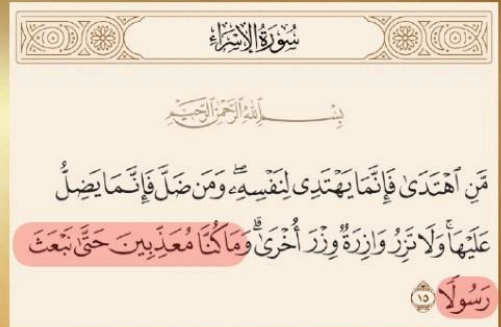 سُورَةُ الإِسْرَاءِ
بِسْمِ اللَّهِ الرَّحْمَٰنِ الرَّحِيمِ
مَّنِ ٱهْتَدَىٰ فَإِنَّمَا يَهْتَدِى لِنَفْسِهِۦۖ وَمَن ضَلَّ فَإِنَّمَا يَضِلُّ
عَلَيْهَاۚ وَلَا تَزِرُ وَازِرَةٌ وِزْرَ أُخْرَىٰۗ وَمَا كُنَّا مُعَذِّبِينَ حَتَّىٰ نَبْعَثَ
رَسُولًا ١٥